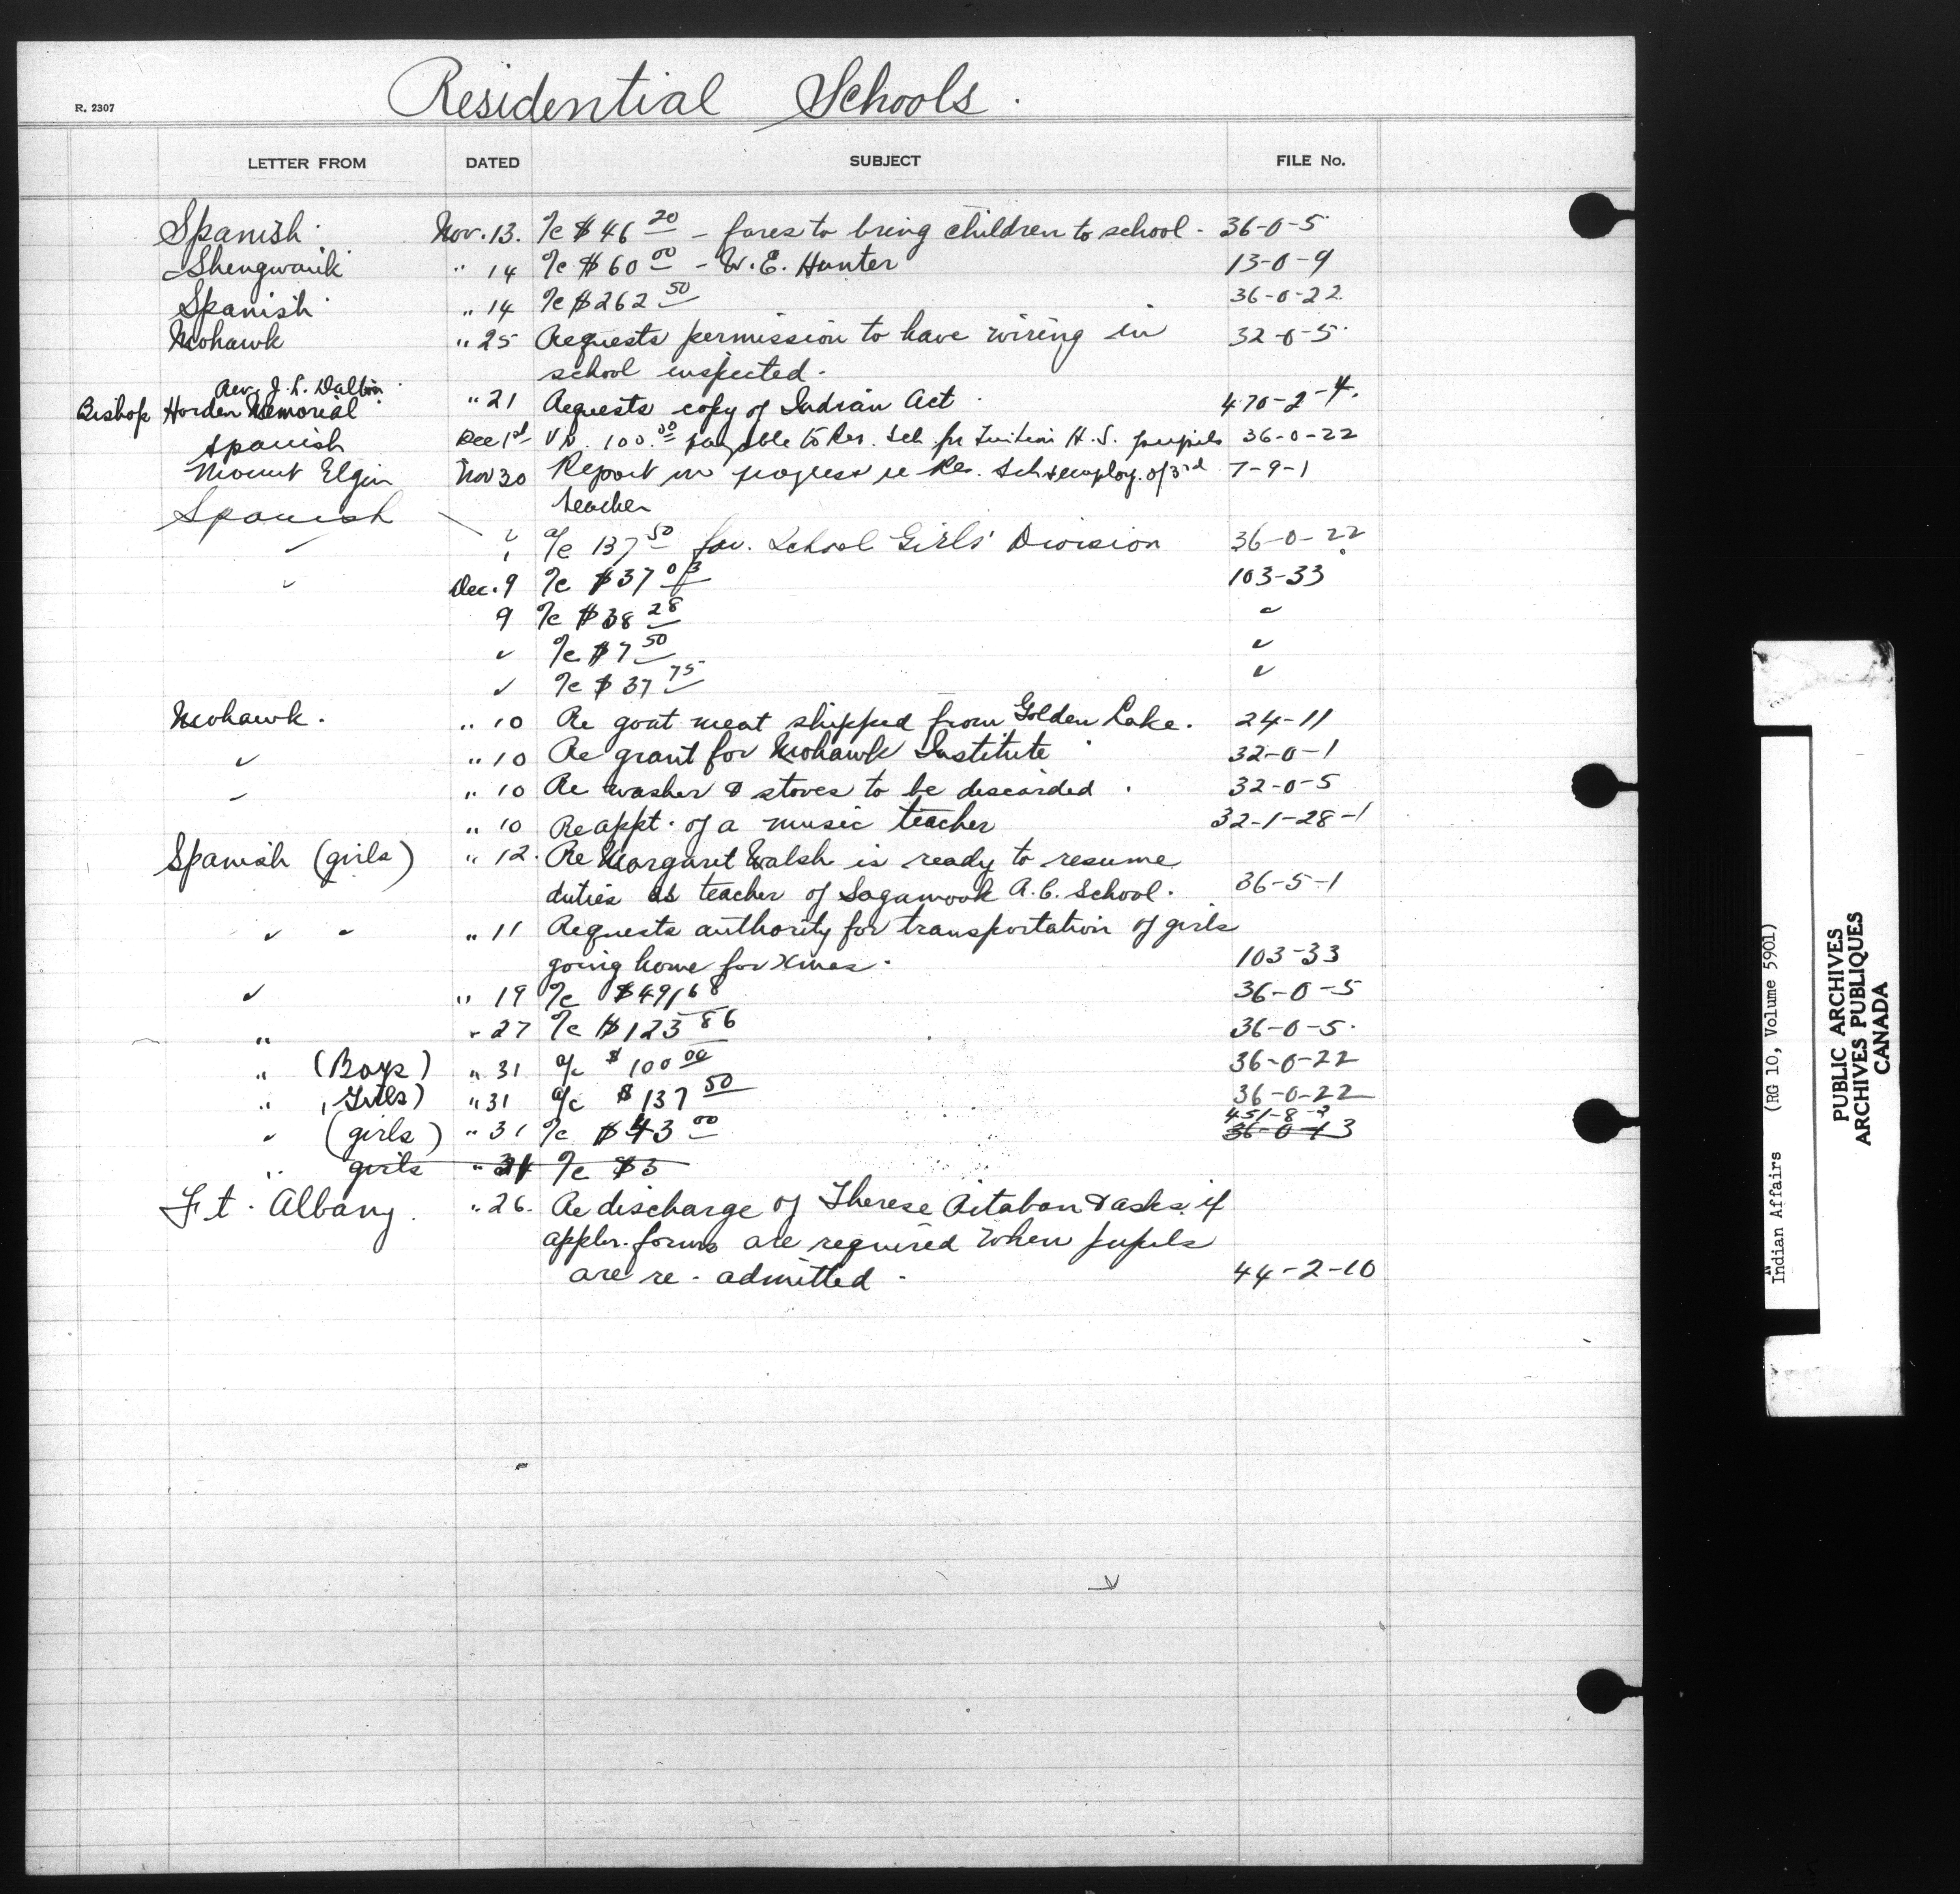 Residential Schools.
R. 2307
LETTER FROM DATED SUBJECT FILE No.
Spanish. Nov. 13. a/c $46 20 – fares to bring children to school - 36-0-5
Shengwauk " 14 a/c $60 00 – W. E. Hunter 13-0-9
Spanish " 14 a/c $262 50 36-0-22
Mohawk " 25 Requests permission to have wiring in 32-0-5
school inspected.
Rev. J. L. Dalton
Bishop Horden Memorial " 21 Requests copy of Indian Act 470-2-4.
Spanish Dec 1st 100.00 payable to Res. Sch. for Tuition H. S. pupils 36-0-22
Mount Elgin Nov 30 Report on progress re Res. Sch & employ. of 3rd 7-9-1
teacher
Spanish
" a/c 137 50 fav. School Girls' Division 36-0-22
" Dec. 9 a/c $37 03 103-33
9 a/c $38 28 "
" a/c $7 50 "
" a/c $37 75 "
Mohawk. " 10 Re goat meat shipped from Golden Lake. 24-11
" " 10 Re grant for Mohawk Institute 32-0-1
" " 10 Re washer & stoves to be discarded. 32-0-5
" 10 Re appt. of a music teacher 32-1-28-1
Spanish (girls) " 12. Re Margaret Walsh is ready to resume
duties as teacher of Sagamook R. C. School. 36-5-1
" " " 11 Requests authority for transportation of girls
going home for Xmas. 103-33
" " 19 a/c $49168 36-0-5
" " 27 a/c $123 86 36-0-5.
" (Boys) " 31 a/c $100 00 36-0-22
" (Girls) " 31 a/c $137 50 36-0-22
451-8-3
" (girls) " 31 a/c $43 00 36-0-13
" girls " 31 a/c $3
Ft. Albany. " 26. Re discharge of Therese Aitaban & asks if
appln. forms are required when pupils
are re-admitted. 44-2-10
Indian Affairs (RG 10, Volume 5901)
PUBLIC ARCHIVES
ARCHIVES PUBLIQUES
CANADA